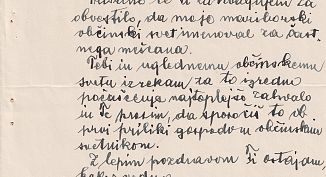 se ti zahvaljujem za
obvestilo, da me je mariborski
občinski svet imenoval za čast-
nega meščana.
Tebi in uglednemu občinskemu
svetu izrekam za to izredno
počaščenje najtoplejšo zahvalo
in Te prosim, da sporočiš to ob
prvi priliki gospodom občinskim
svetnikom.
Z lepim pozdravom Ti ostajam,